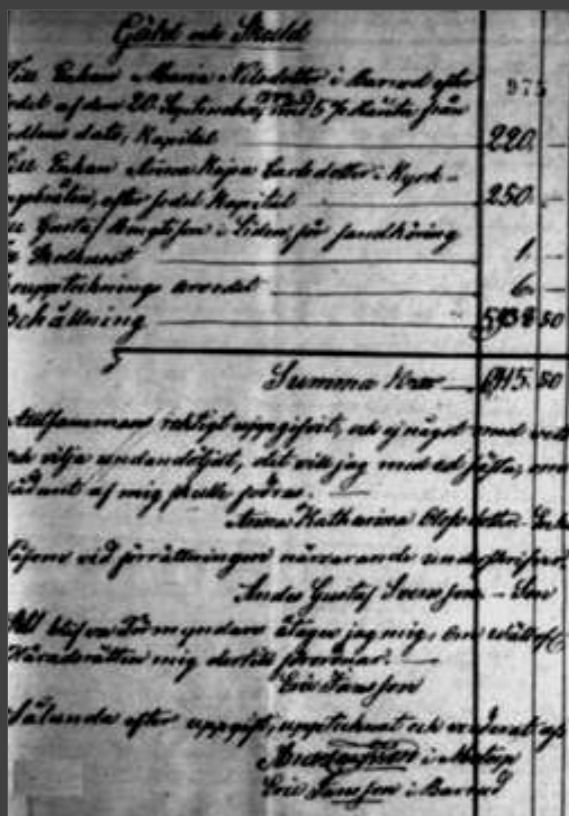 Gäld och Skuld
Till Enkan Maria Nilsdotter i Barrud efter
sedel af den 20 September, med 5 % Ränta från
sedlens dato, Kapital 220. —
Till Enkan Anna Kajsa Carlsdotter i Kyrk-
efter sedel Kapital 250. —
Gustaf Bengtsson i Liden, för
1. —
arvodet 6. —
Behållning 5938 50
Summa Kr 6415. 50
Allsammans riktigt uppgifvit, och ej något med vett
och vilja undandöljdt, det vill jag med ed fästa, om
sådant af mig skulle fodras.
Anna Katharina Olofsdotter Enka
Såsom vid förrättningen närvarande underskrifver.
Gustaf Svensson — Son
Att blifva Förmyndare åtager jag mig, om
Häradsrätten mig dertill förordnar.
Eric Jansson
Sålunda efter uppgift, upptecknat och värderat af
i
Eric Jansson i Barrud